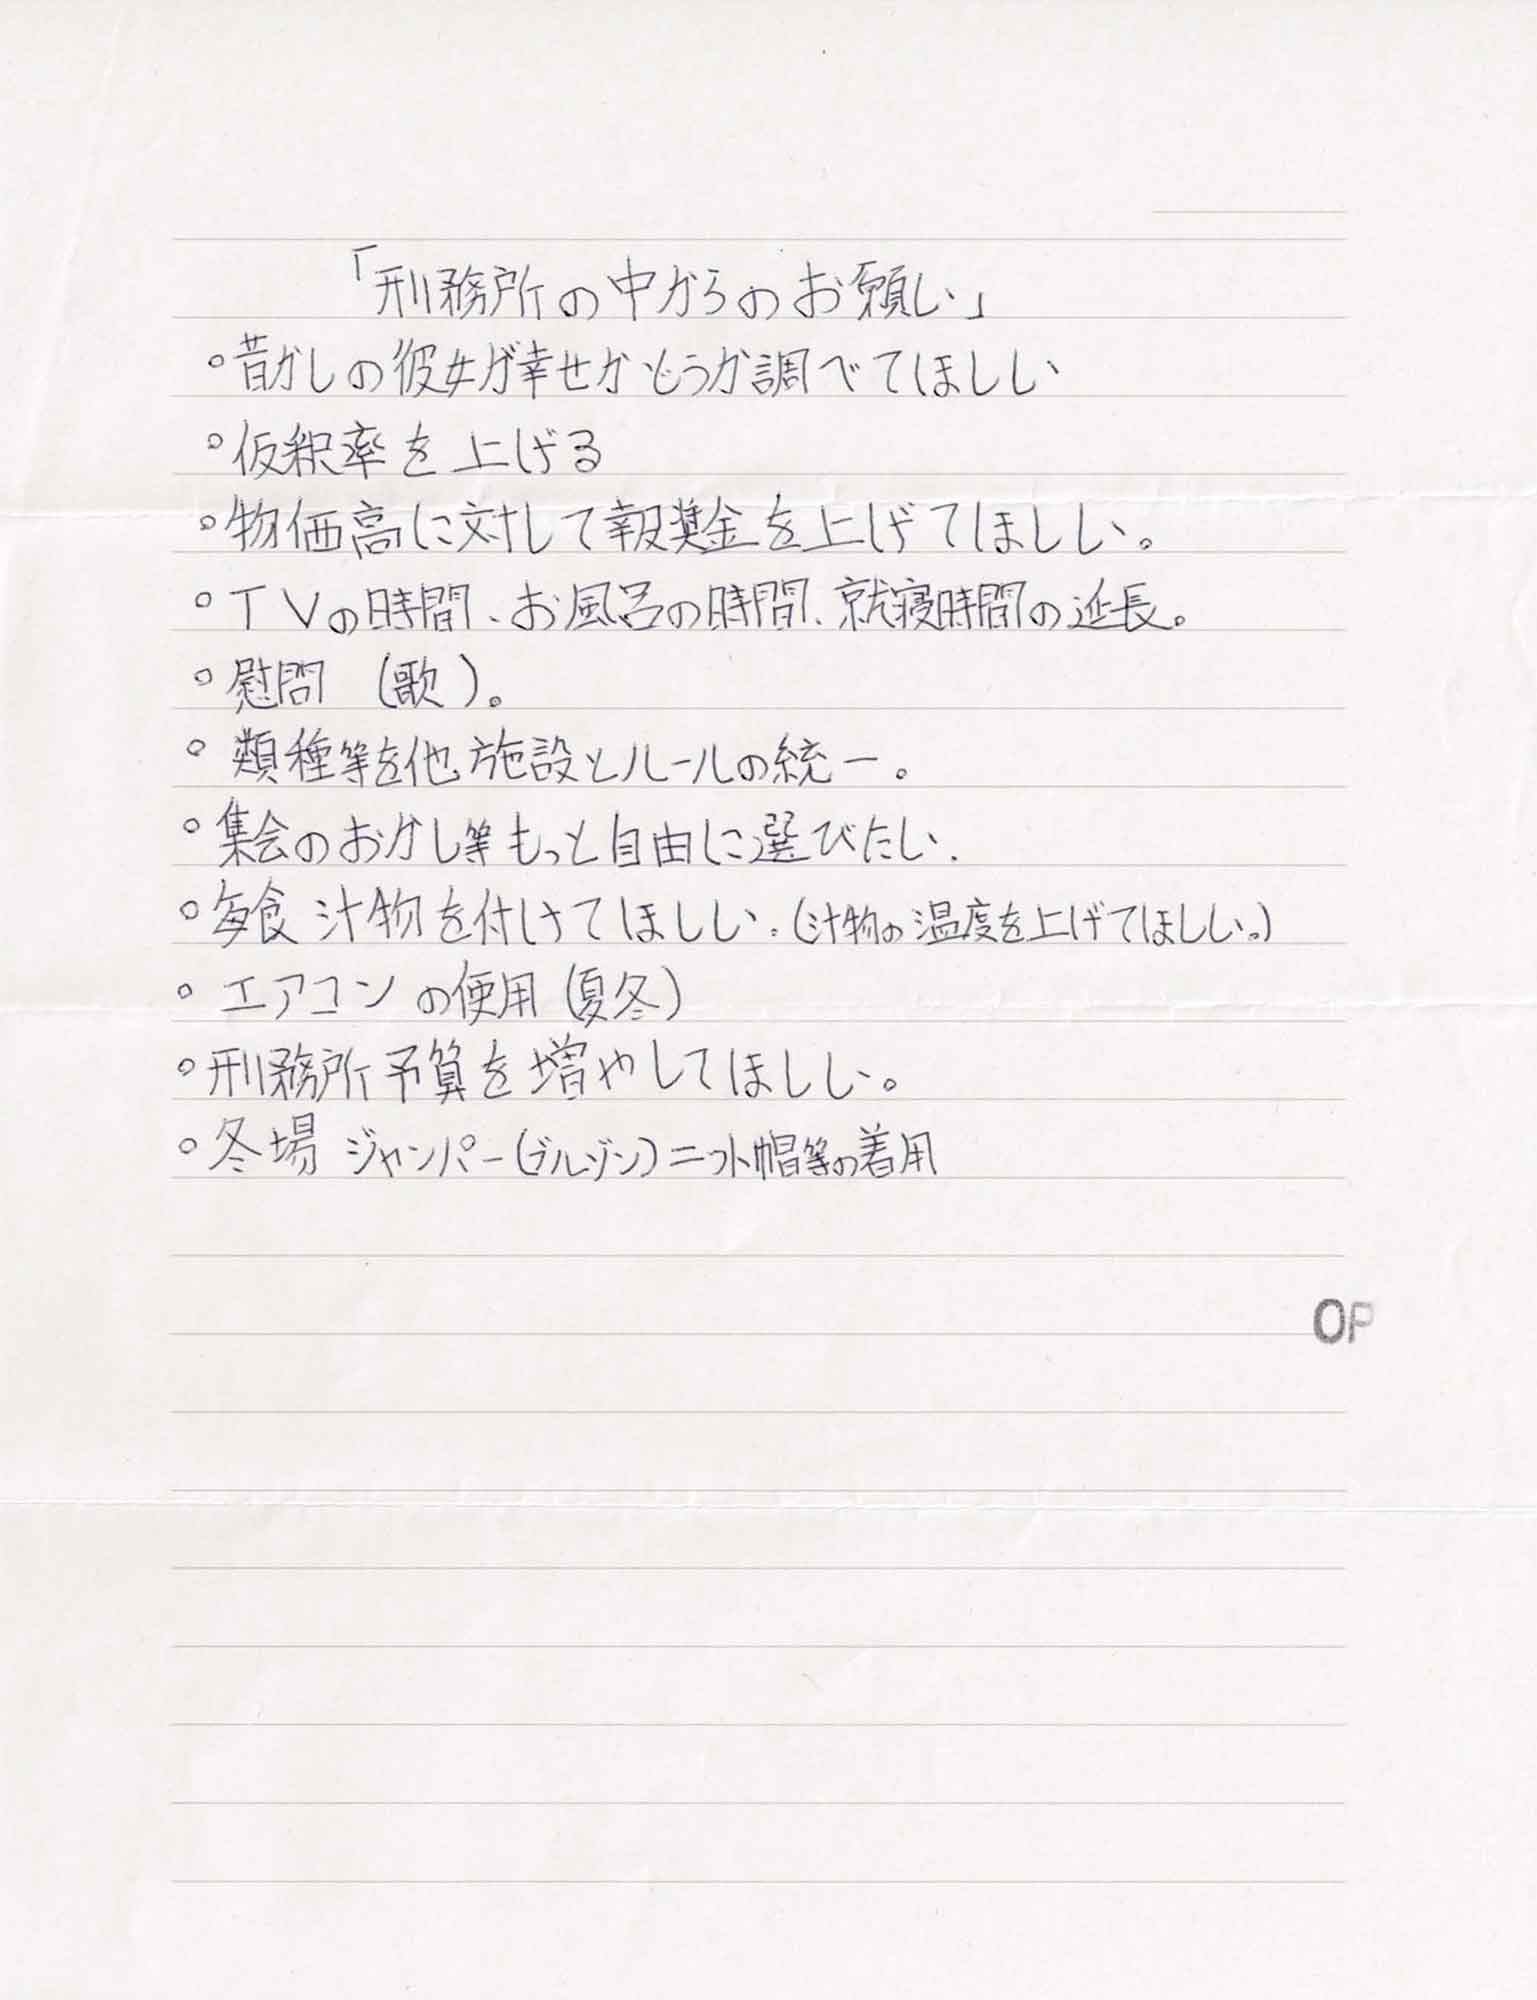 「刑務所の中からのお願い」
◦昔かしの彼女が幸せかどうか調べてほしい
◦仮釈率を上げる
◦物価高に対して報奨金を上げてほしい。
◦TVの時間、お風呂の時間、就寝時間の延長。
◦慰問 (歌)。
◦類種等を他施設とルールの統一。
◦集会のおかし等もっと自由に選びたい.
◦毎食 汁物を付けてほしい。(汁物の温度を上げてほしい。)
◦エアコンの使用(夏冬)
◦刑務所予算を増やしてほしい。
◦冬場 ジャンパー(ブルゾン)ニット帽等の着用
OP